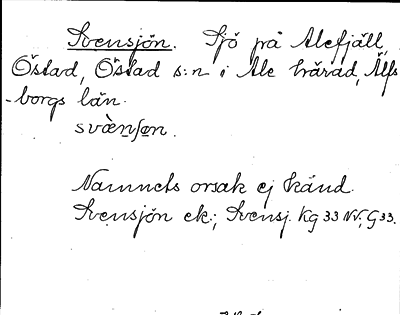 Svensjön. Sjö på Alefjäll,
Östad, Östad s:n i Ale härad, Älfs
-borgs län.
svæ̀nʃøn.
Namnets orsak ej känd.
Svensjön ek.; Svensj. Kg 33 NV, G 33.